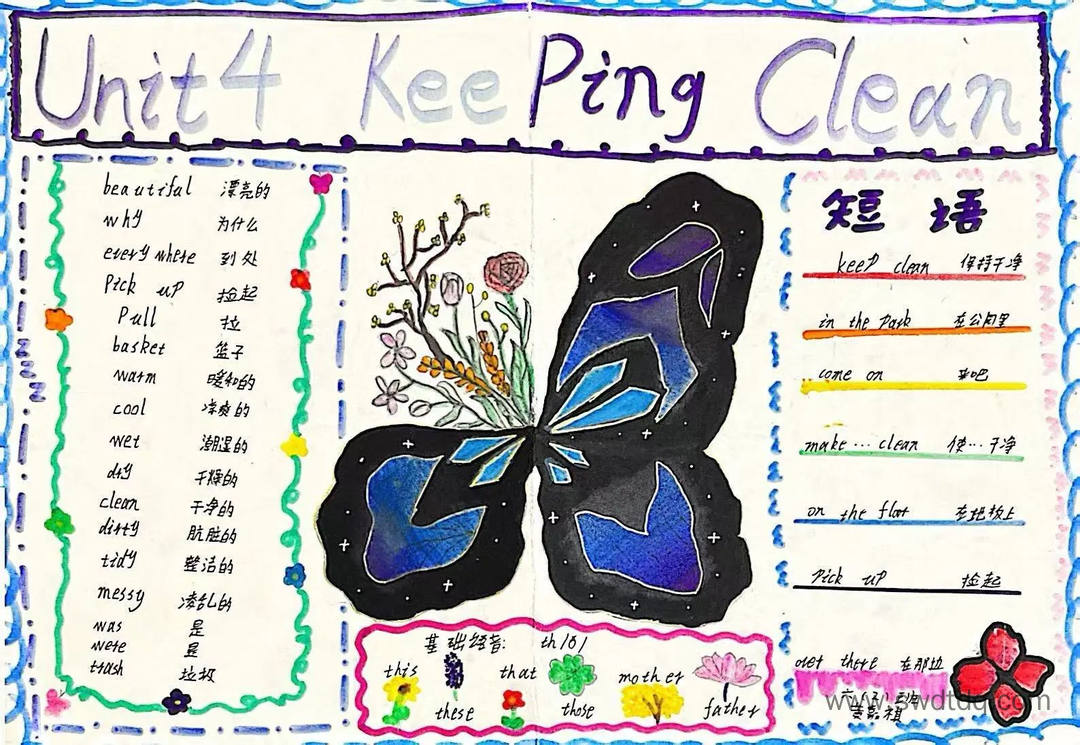 Unit4 KeePing Clean
beautiful 漂亮的
why 为什么
everywhere 到处
Pick uP 捡起
Pull 拉
basket 篮子
warm 暖和的
cool 凉爽的
wet 潮湿的
dry 干燥的
clean 干净的
dirty 肮脏的
tidy 整洁的
messy 凌乱的
was 是
were 是
trash 垃圾
基础语音: th/ð/
this that mother
these those father
短语
keeP clean 保持干净
in the Park 在公园里
come on 来吧
make… clean 使…干净
on the floor 在地板上
Pick uP 捡起
over there 在那边